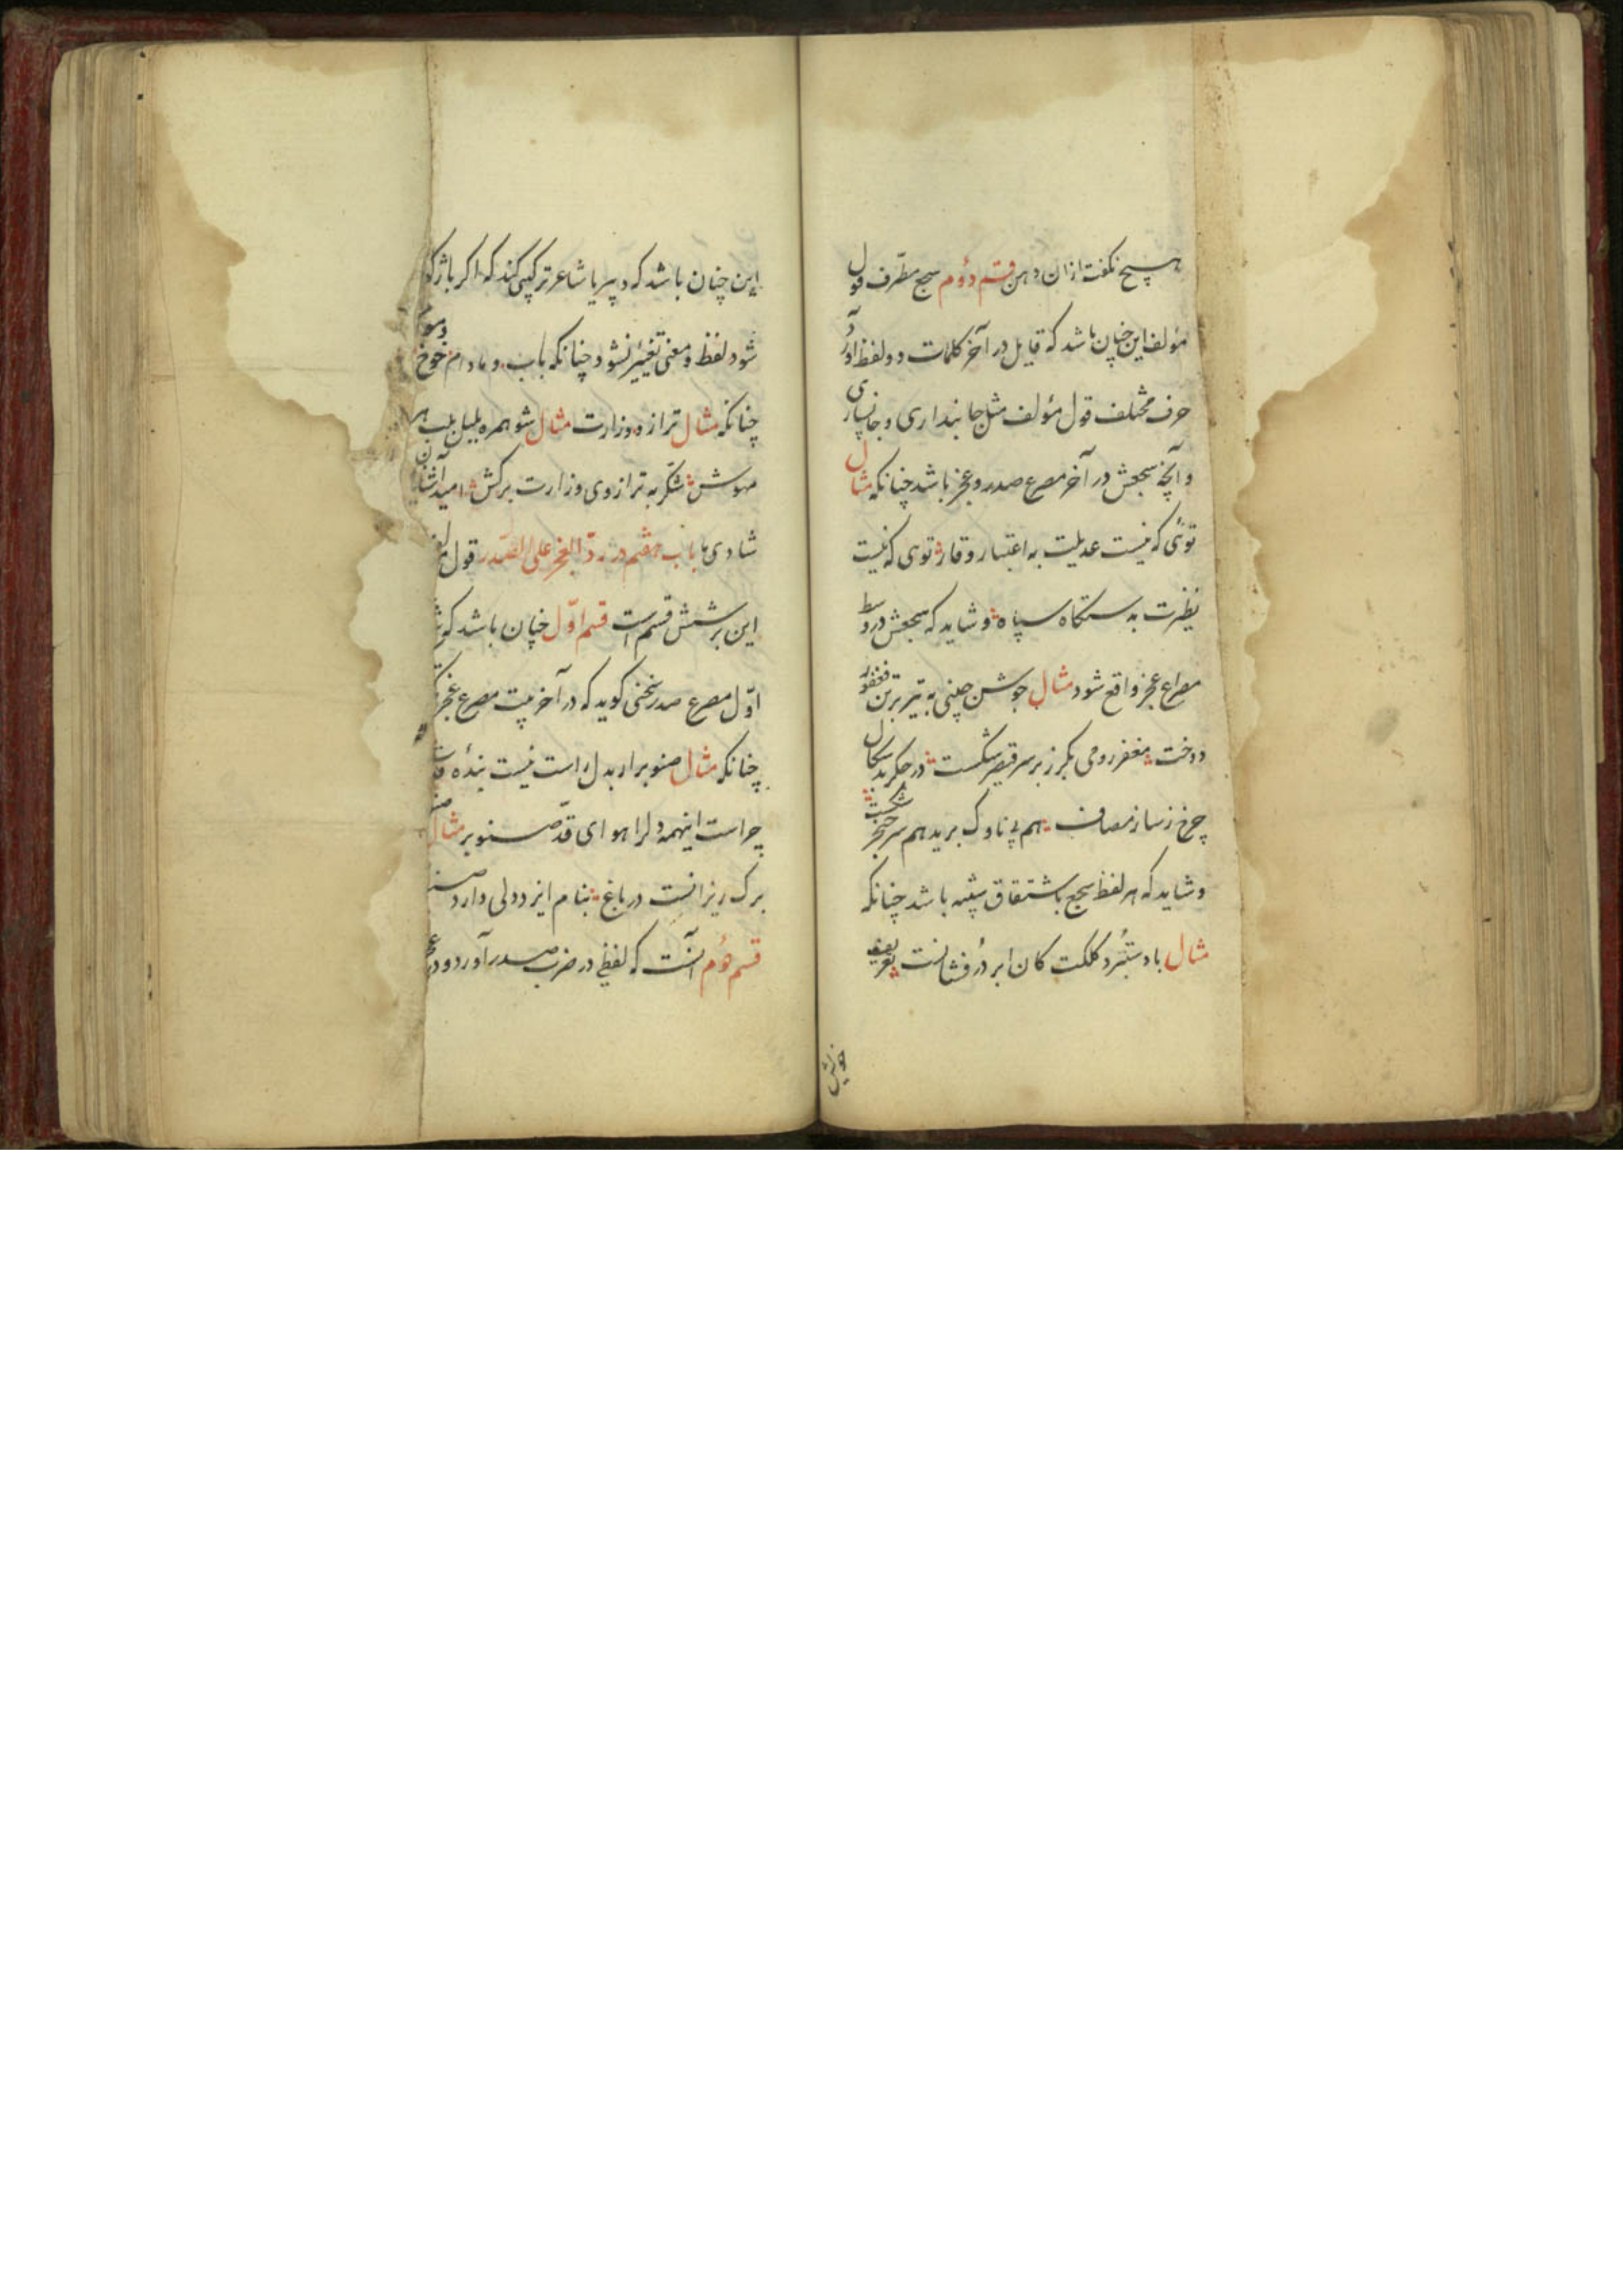 هیچ نکفت ازان دهن قسم دوم سجع مطرّف قول
مؤلف این چنان باشد که قایل در آخر کلمات دو لفظ آورد
حرف مختلف قول مؤلف مثل جانبداری و جانسپاری
و آنچه سجعش در آخر مصرع صدر و عجز باشد چنانکه مثال
توئی که نیست عدیلت به اعتبار و قار توی که نیست
نظیرت بدستکاه سپاه و شاید که سجعش در وسط
مصراع عجز واقع شود مثال جوشن چینی به تیر برتن فغفور
دوخت مغفر رومی بکرز برسر قیصر شکست در جکر بدسکال
چرخ ز ساز مصاف هم پی ناوک برید هم سر خنجر شکست
و شاید که هر لفظ سجع باشتقاق شبیه باشد چنانکه
مثال باد ستبُرد کلکت کان ابر دُرفشانست تعریف
خویش
این چنان باشد که دبیر یا شاعر ترکیبی کند که اکر باژکو
شود لفظ و معنی تغییر نشود چنانکه باب و مادام خوخ
چنانکه مثال ترازو وزارت مثال شو همره بلبل بلب هر
مهوش شکر به ترازوی وزارت برکش امید آشنایان
شادی ما باب هفتم در ردّ العجز علی الصّدر قول
این بر شش قسم است قسم اوّل چنان باشد که
اوّل مصرع صدر سخنی کوید که در آخر بیت مصرع عجز
چنانکه مثال صنوبر ار بدل راست نیست بندهٔ
چراست اینهمه دلرا هوای قدّ صنوبر مثال
برک ریزانست در باغ بنام ایزد دلی دارد
قسم دوُم آنست که لفظی در ضرب صدر آورد و در